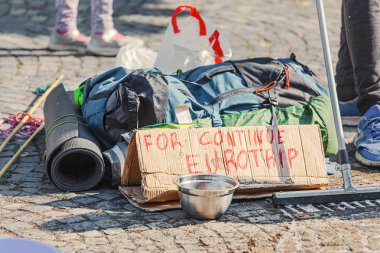 FOR CONTINUE
EUROTRIP